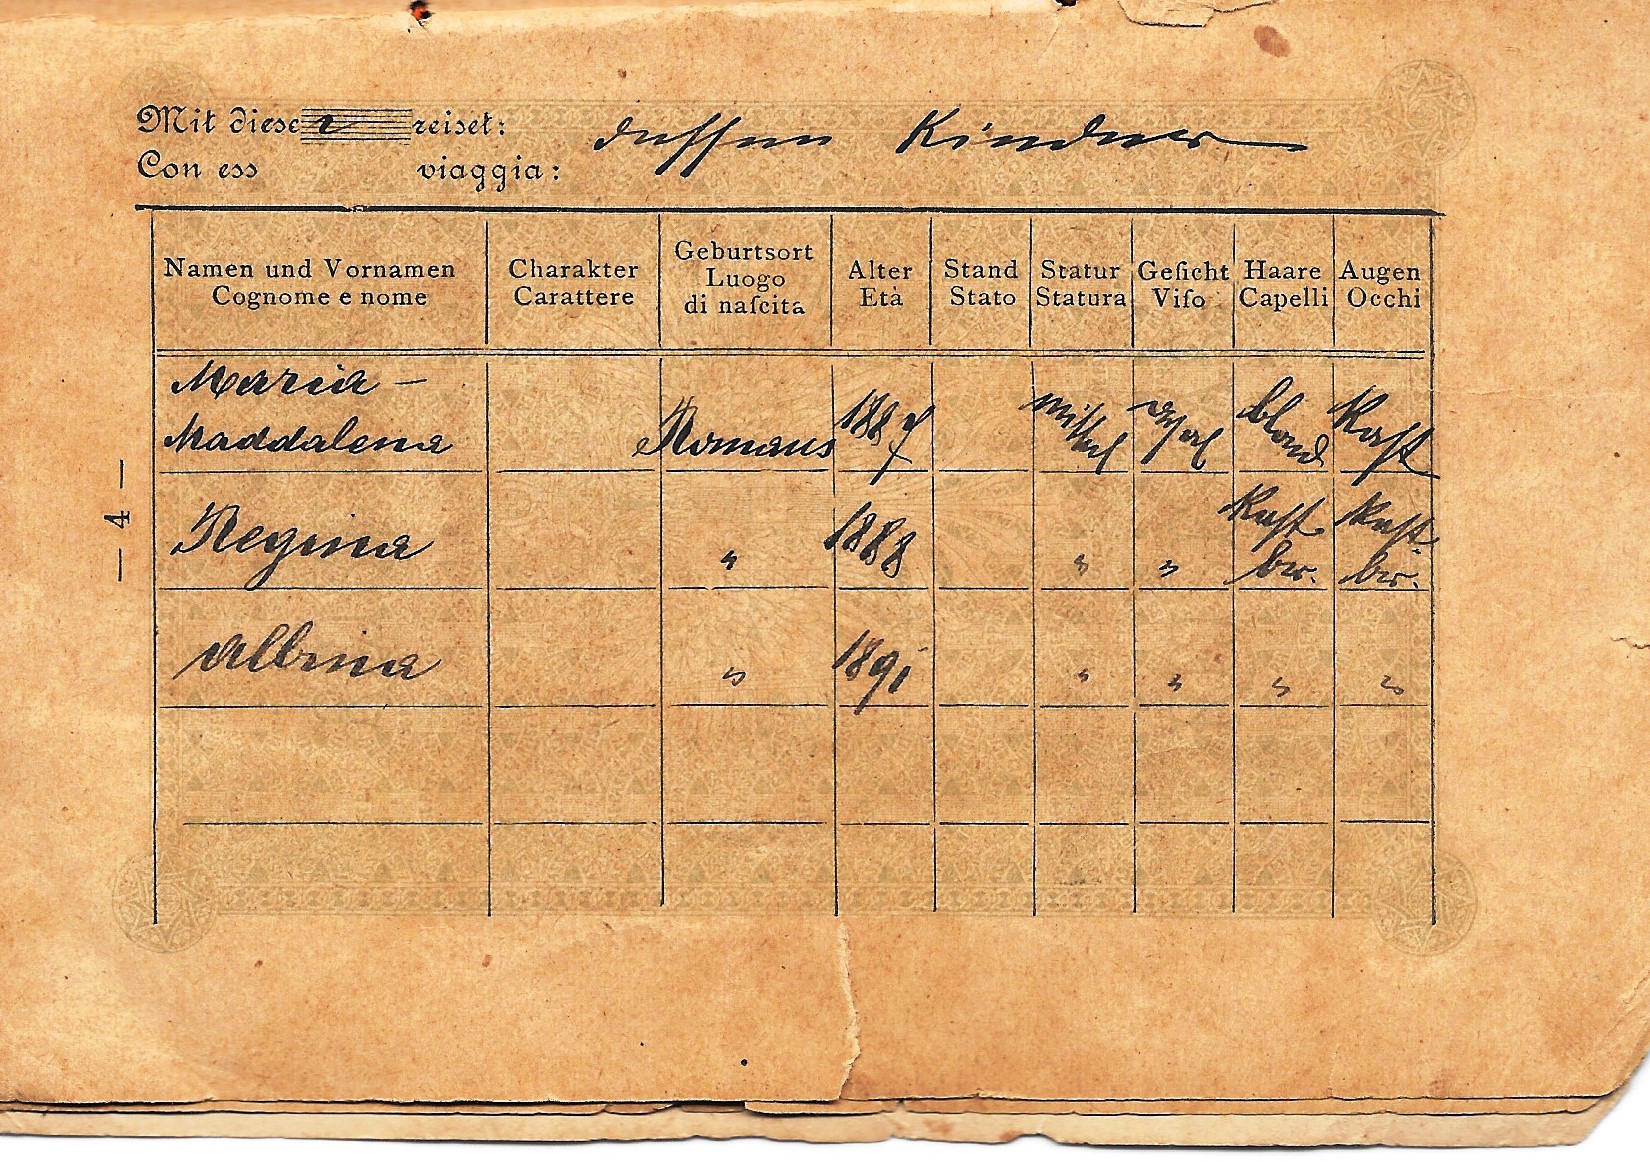 Mit diese r reiset: dessen Kinder
Con ess viaggia:
Namen und Vornamen
Cognome e nome
Charakter
Carattere
Geburtsort
Luogo
di naſcita
Alter
Età
Stand
Stato
Statur
Statura
Geſicht
Viſo
Haare
Capelli
Augen
Occhi
Maria –
Maddalena Romans 1887 mittel oval blond Kast
Regina " 1888 " " Kast. Kast.
br. br.
Albina " 1891 " " " "
— 4 —